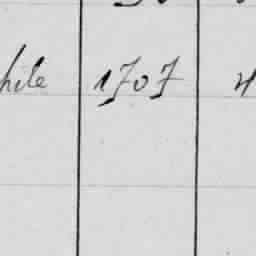 hile 1707 4